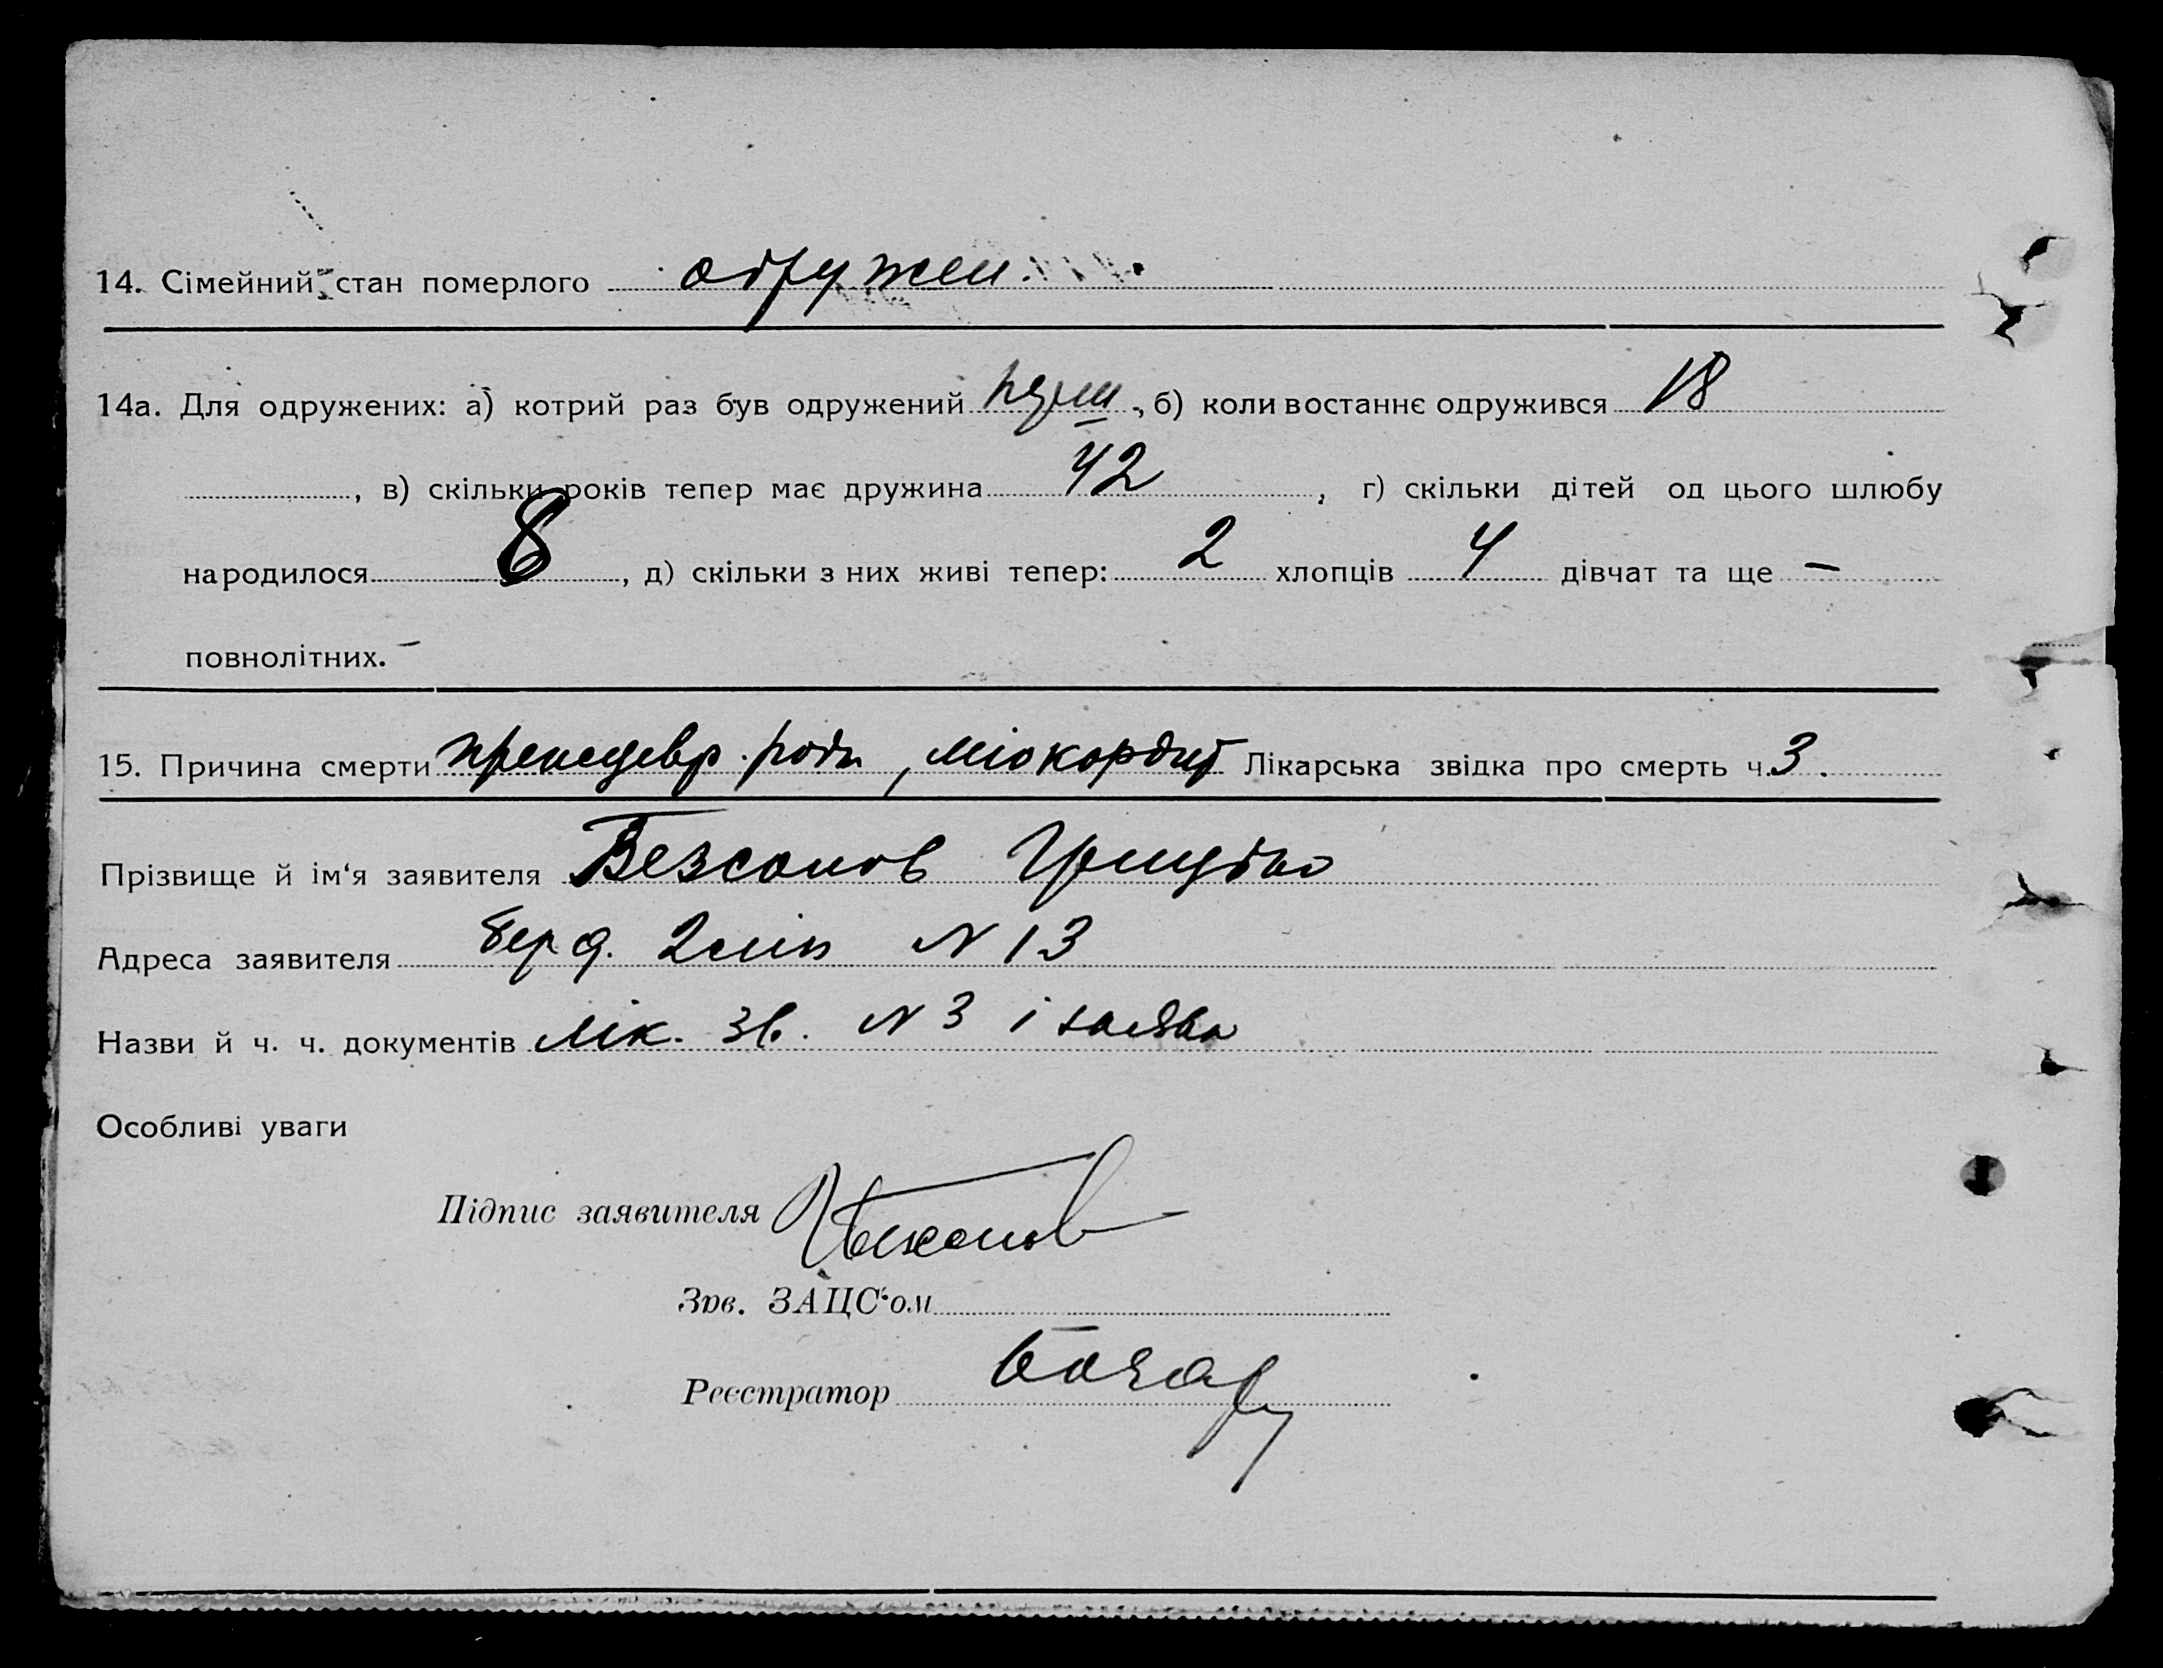 14. Сімейний стан померлого одружен.
14а. Для одружених: а) котрий раз був одружений перш, б) коли востаннє одружився 18
, в) скільки років тепер має дружина 42, г) скільки дітей од цього шлюбу
народилося 8, д) скільки з них живі тепер: 2 хлопців 4 дівчат та ще —
повнолітних. —
15. Причина смерти , міокордит Лікарська звідка про смерть ч. 3.
Прізвище й ім'я заявителя Безсонов
Адреса заявителя Берд. N 13
Назви й ч. ч. документів лік. зв. N 3 і заява
Особливі уваги
Підпис заявителя
Зав. ЗАЦС'ом
Реєстратор